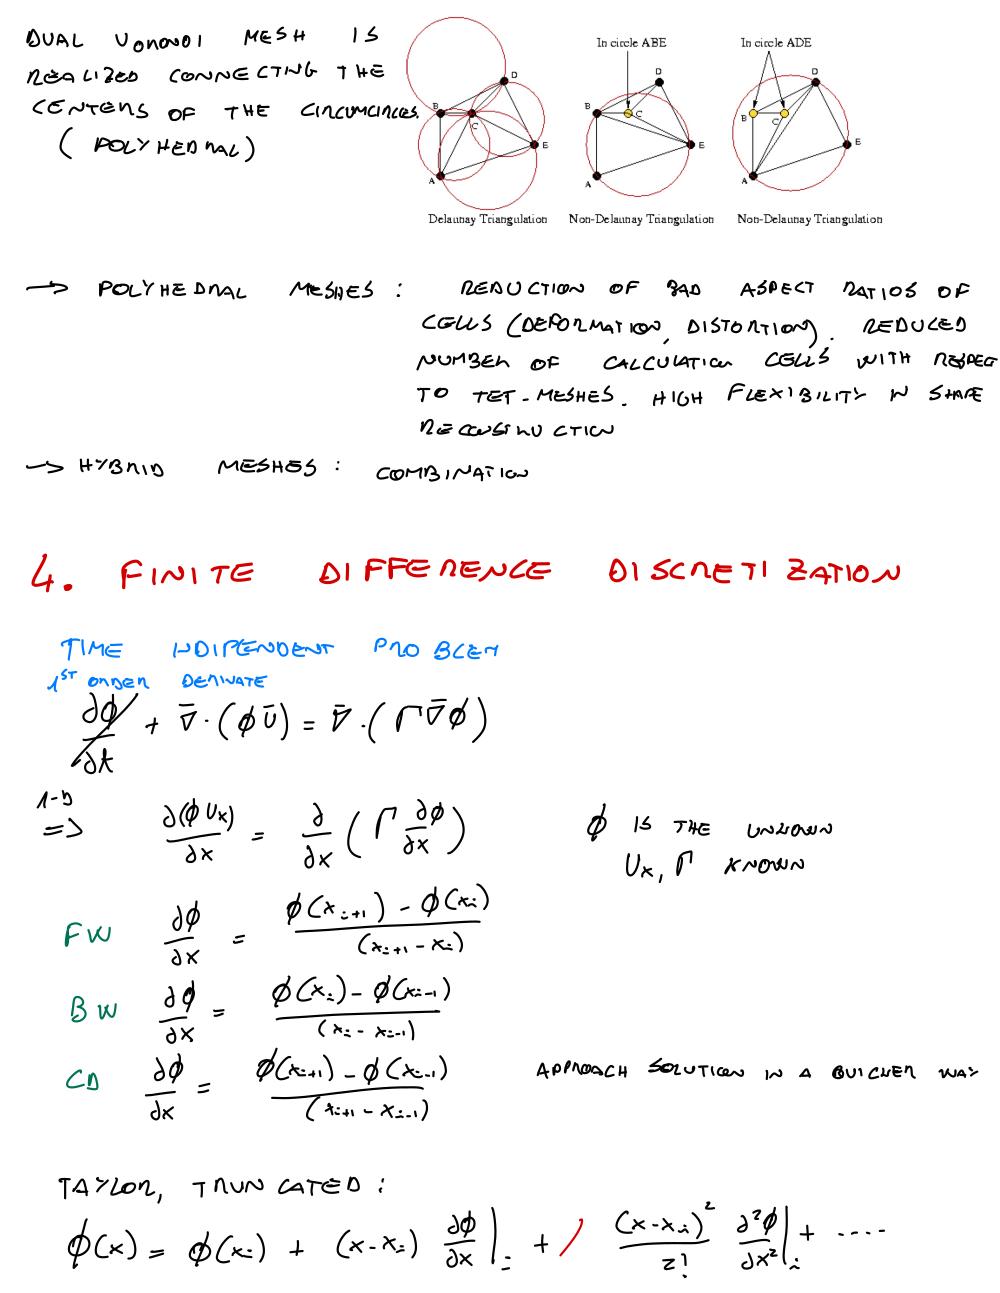 DUAL VORONOI MESH IS
REALIZED CONNECTING THE
CENTERS OF THE CIRCUMCIRCLES.
( POLYHEDRAL )
In circle ABE
In circle ADE
D
B
C
E
A
D
B
C
E
A
D
B
C
E
A
Delaunay Triangulation
Non-Delaunay Triangulation
Non-Delaunay Triangulation
→ POLYHEDRAL MESHES : REDUCTION OF BAD ASPECT RATIOS OF
CELLS (DEFORMATION, DISTORTION). REDUCED
NUMBER OF CALCULATION CELLS WITH RESPECT
TO TET-MESHES. HIGH FLEXIBILITY IN SHAPE
RECONSTRUCTION
→ HYBRID MESHES : COMBINATION
4. FINITE DIFFERENCE DISCRETIZATION
TIME INDIPENDENT PROBLEM
1ST ORDER DERIVATE
∂ϕ/∂t + ∇̄·(ϕŪ) = ∇̄·(Γ∇̄ϕ)
1-D
=> ∂(ϕUx)/∂x = ∂/∂x (Γ ∂ϕ/∂x) ϕ IS THE UNKOWN
Ux, Γ KNOWN
FW ∂ϕ/∂x = (ϕ(xi+1) - ϕ(xi))/(xi+1 - xi)
BW ∂ϕ/∂x = (ϕ(xi) - ϕ(xi-1))/(xi - xi-1)
CD ∂ϕ/∂x = (ϕ(xi+1) - ϕ(xi-1))/(xi+1 - xi-1) APPROACH SOLUTION IN A QUICKER WAY
TAYLOR, TRUNCATED :
ϕ(x) = ϕ(xi) + (x-xi) ∂ϕ/∂x|i + / (x-xi)²/2! ∂²ϕ/∂x²|i + ....